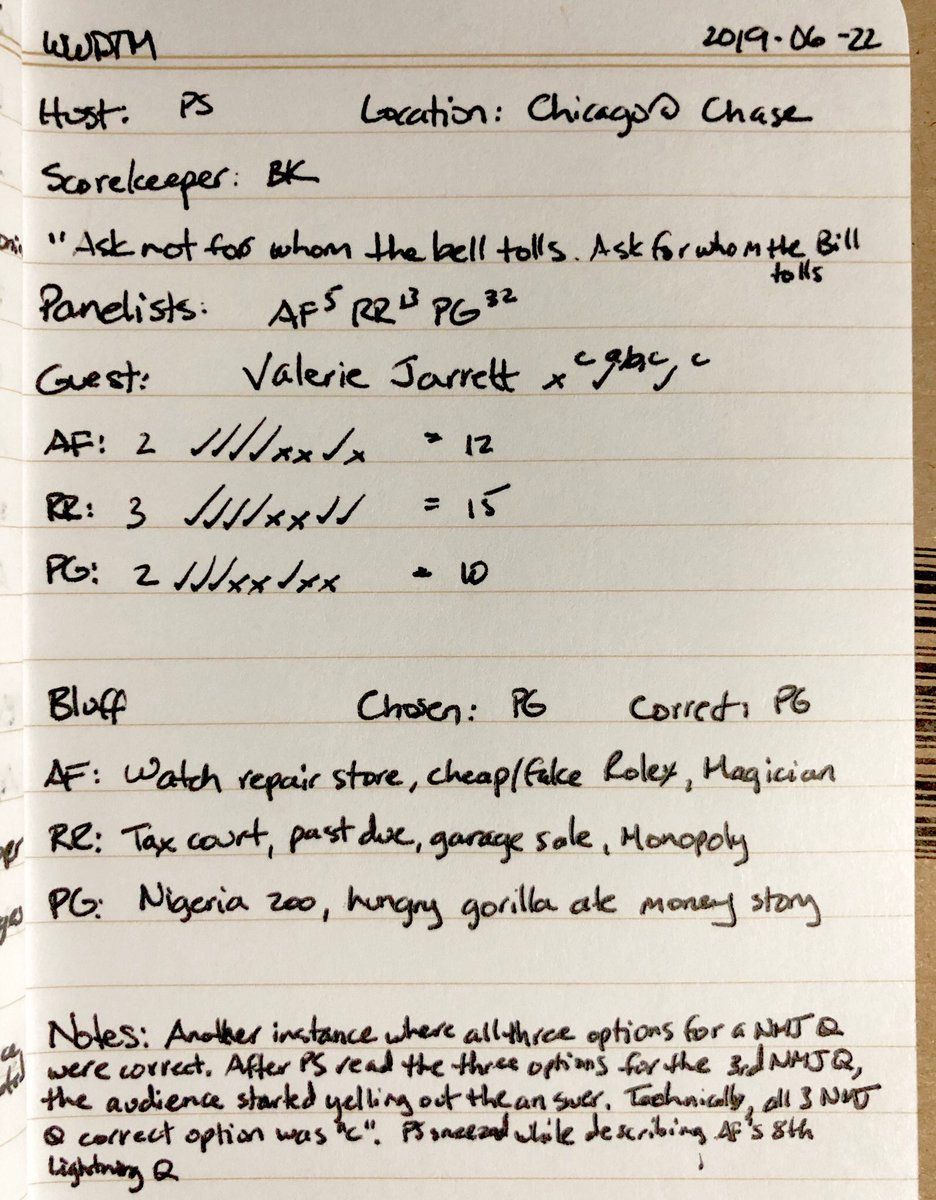 WWDTM 2019-06-22
Host: PS Location: Chicago @ Chase
Scorekeeper: BK
"Ask not for whom the bell tolls. Ask for whom the Bill
tolls
Panelists: AF⁵ RR¹³ PG³²
Guest: Valerie Jarrett x c ✓ a,b,c ✓ c
AF: 2 ✓✓✓✓xx✓x = 12
RR: 3 ✓✓✓✓xx✓✓ = 15
PG: 2 ✓✓✓xx✓xx = 10
Bluff Chosen: PG Correct: PG
AF: Watch repair store, cheap/fake Rolex, Magician
RR: Tax court, past due, garage sale, Monopoly
PG: Nigeria zoo, hungry gorilla ate money story
Notes: Another instance where all three options for a NMJ Q
were correct. After PS read the three options for the 3rd NMJ Q,
the audience started yelling out the answer. Technically, all 3 NMJ
Q correct option was "c". PS sneezed while describing AF's 8th
Lightning Q